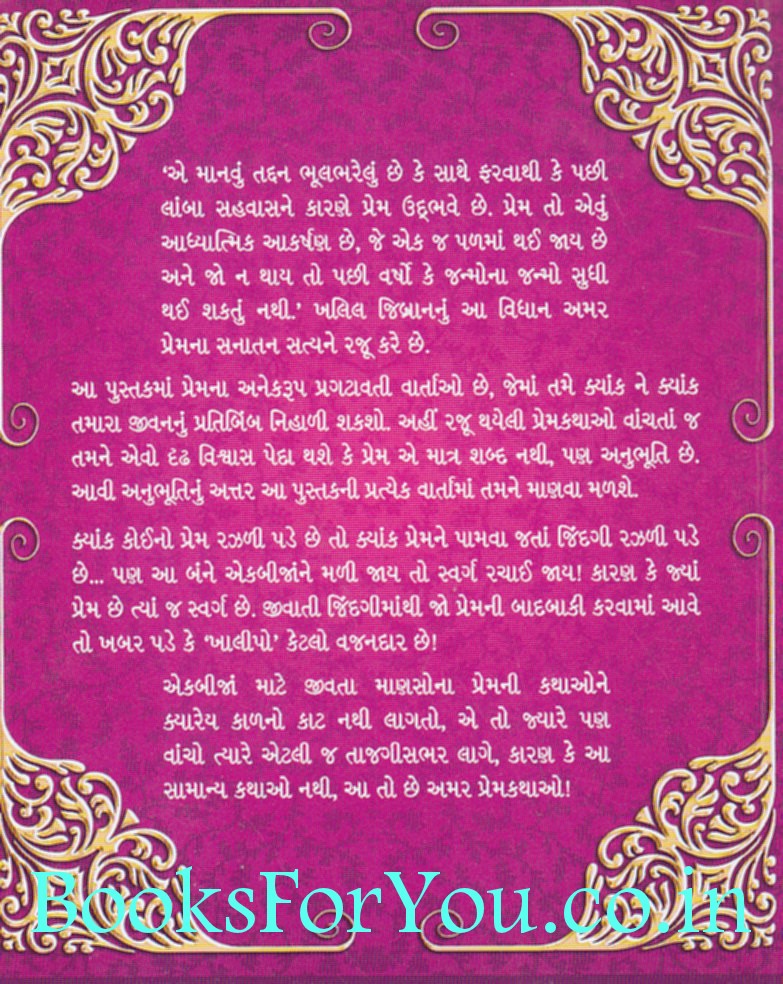 ‘એ માનવું તદ્દન ભૂલભરેલું છે કે સાથે ફરવાથી કે પછી
લાંબા સહવાસને કારણે પ્રેમ ઉદ્ભવે છે. પ્રેમ તો એવું
આધ્યાત્મિક આકર્ષણ છે, જે એક જ પળમાં થઈ જાય છે
અને જો ન થાય તો પછી વર્ષો કે જન્મોના જન્મો સુધી
થઈ શકતું નથી.’ ખલિલ જિબ્રાનનું આ વિધાન અમર
પ્રેમના સનાતન સત્યને રજૂ કરે છે.
આ પુસ્તકમાં પ્રેમના અનેકરૂપ પ્રગટાવતી વાર્તાઓ છે, જેમાં તમે ક્યાંક ને ક્યાંક
તમારા જીવનનું પ્રતિબિંબ નિહાળી શકશો. અહીં રજૂ થયેલી પ્રેમકથાઓ વાંચતાં જ
તમને એવો દૃઢ વિશ્વાસ પેદા થશે કે પ્રેમ એ માત્ર શબ્દ નથી, પણ અનુભૂતિ છે.
આવી અનુભૂતિનું અત્તર આ પુસ્તકની પ્રત્યેક વાર્તામાં તમને માણવા મળશે.
ક્યાંક કોઈનો પ્રેમ રઝળી પડે છે તો ક્યાંક પ્રેમને પામવા જતાં જિંદગી રઝળી પડે
છે... પણ આ બંને એકબીજાંને મળી જાય તો સ્વર્ગ રચાઈ જાય! કારણ કે જ્યાં
પ્રેમ છે ત્યાં જ સ્વર્ગ છે. જીવાતી જિંદગીમાંથી જો પ્રેમની બાદબાકી કરવામાં આવે
તો ખબર પડે કે ‘ખાલીપો’ કેટલો વજનદાર છે!
એકબીજાં માટે જીવતા માણસોના પ્રેમની કથાઓને
ક્યારેય કાળનો કાટ નથી લાગતો, એ તો જ્યારે પણ
વાંચો ત્યારે એટલી જ તાજગીસભર લાગે, કારણ કે આ
સામાન્ય કથાઓ નથી, આ તો છે અમર પ્રેમકથાઓ!
BooksForYou.co.in